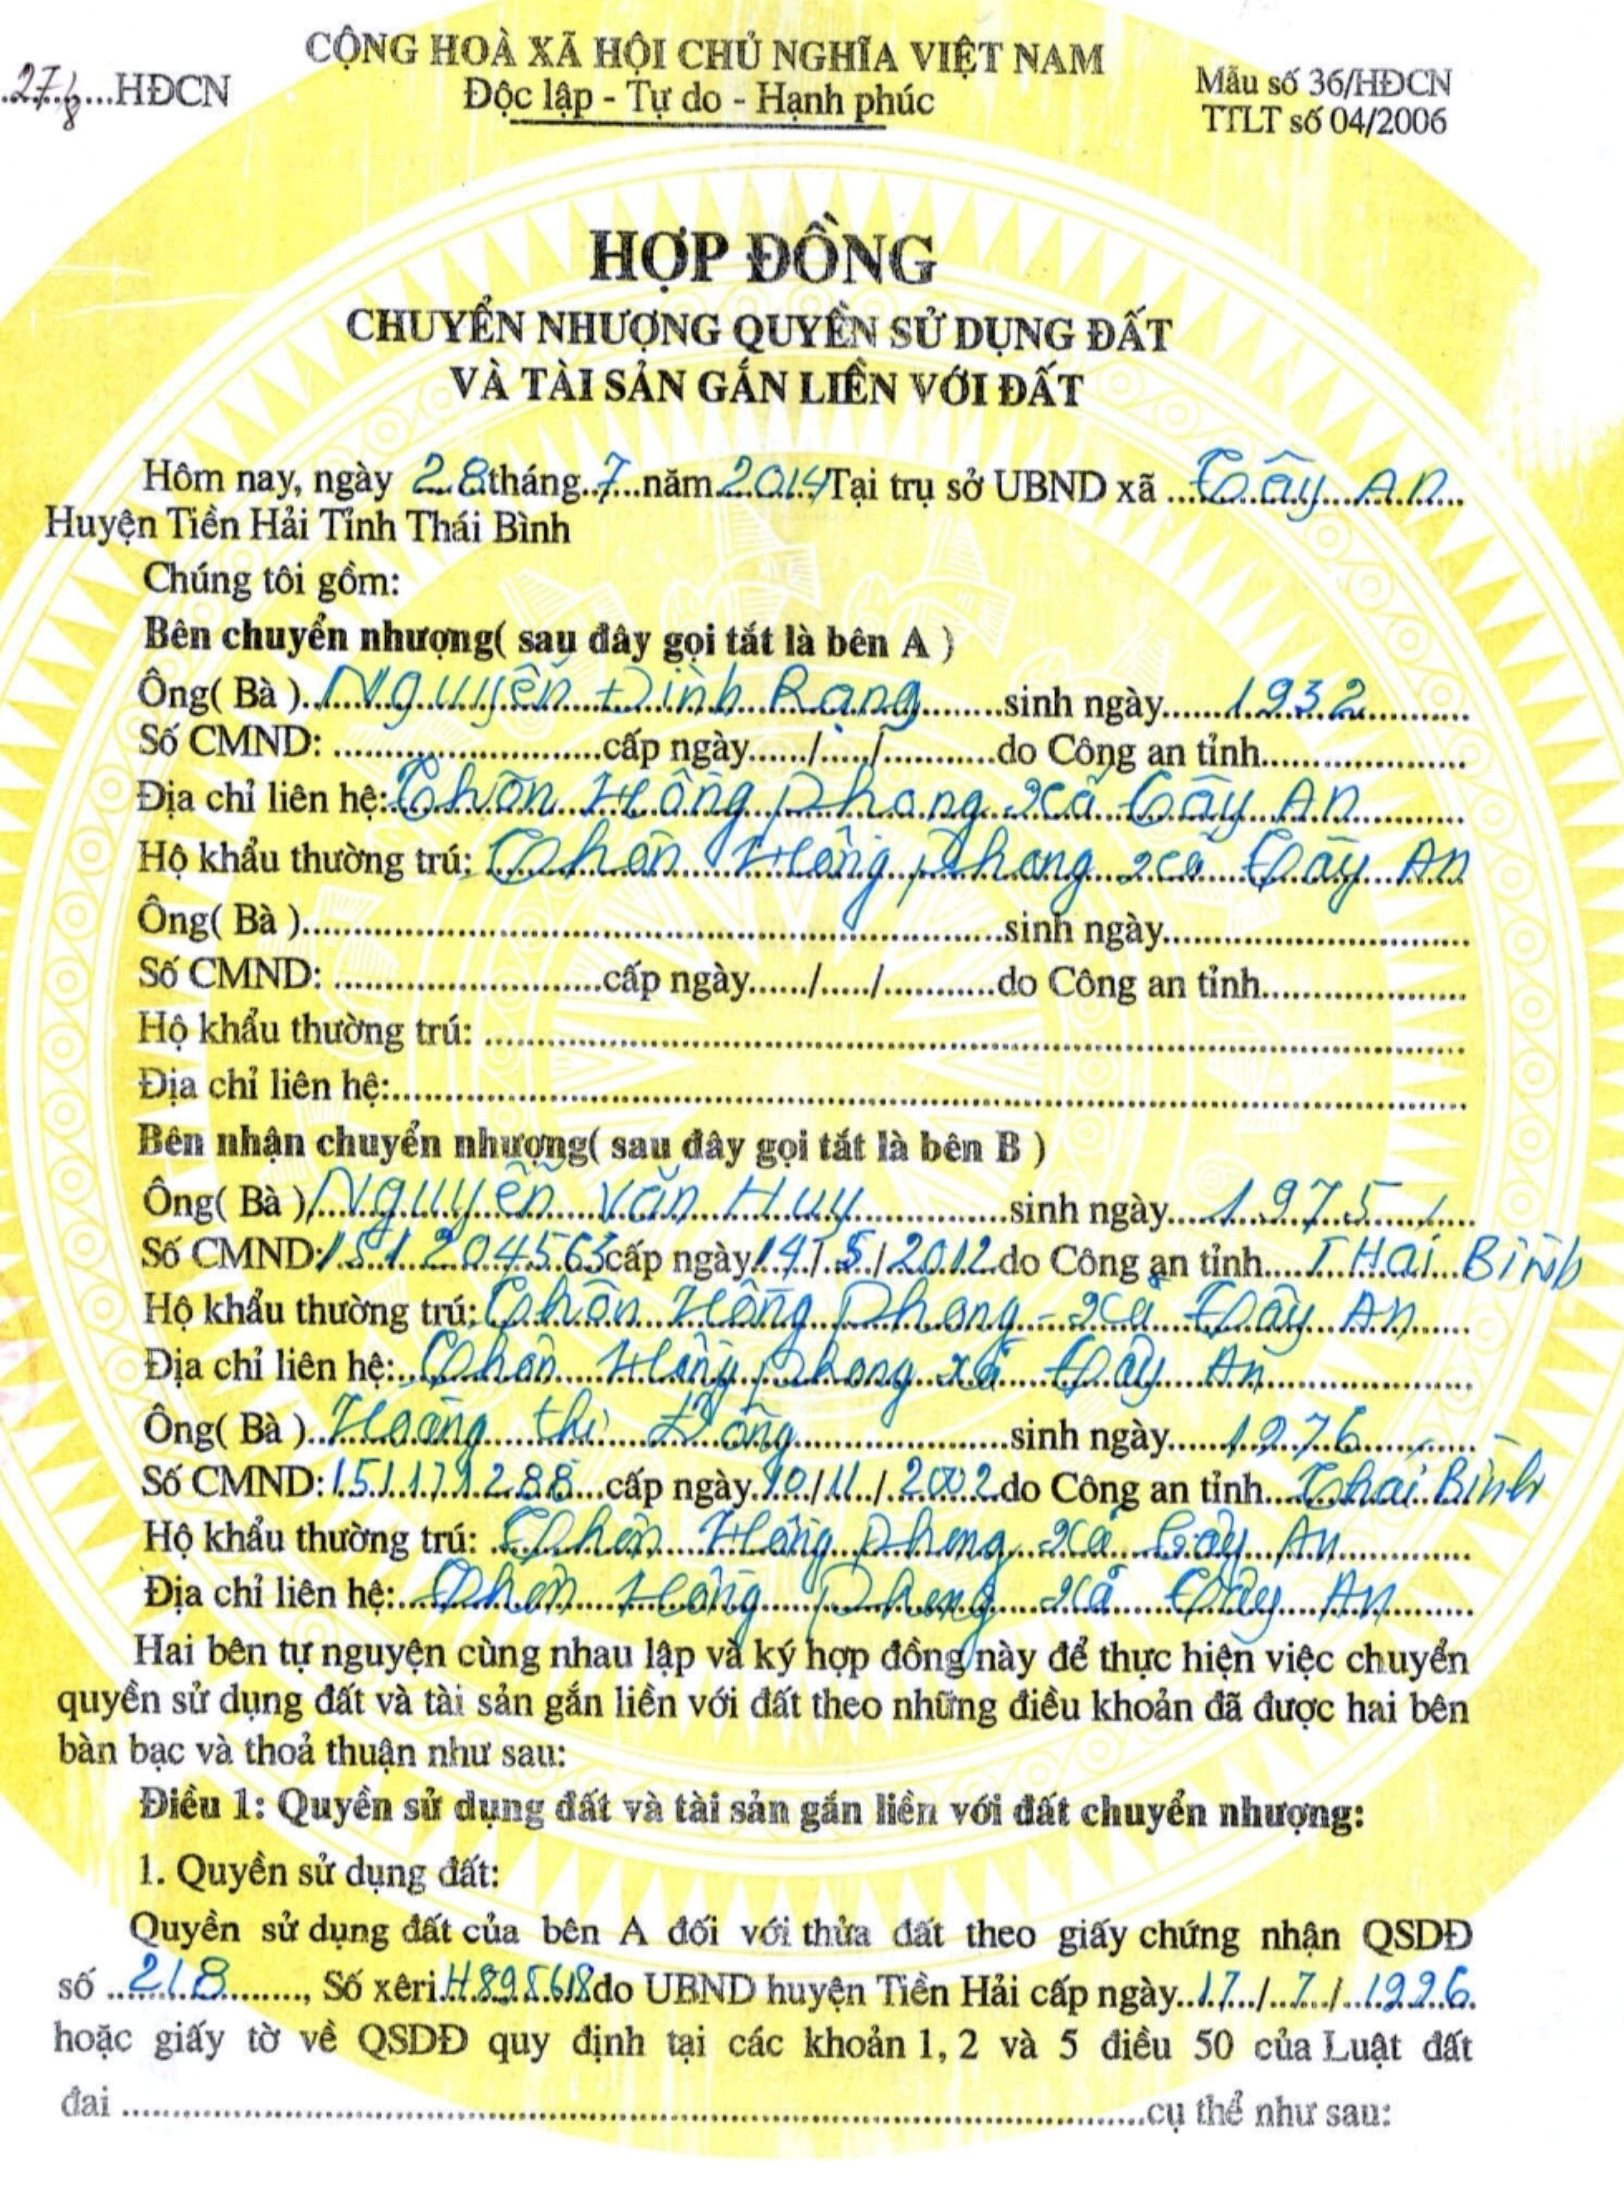 27/8 HĐCN
CỘNG HOÀ XÃ HỘI CHỦ NGHĨA VIỆT NAM
Độc lập - Tự do - Hạnh phúc
Mẫu số 36/HĐCN
TTLT số 04/2006
HỢP ĐỒNG
CHUYỂN NHƯỢNG QUYỀN SỬ DỤNG ĐẤT
VÀ TÀI SẢN GẮN LIỀN VỚI ĐẤT
Hôm nay, ngày 28 tháng 7 năm 2014 Tại trụ sở UBND xã Tây An
Huyện Tiền Hải Tỉnh Thái Bình
Chúng tôi gồm:
Bên chuyển nhượng( sau đây gọi tắt là bên A )
Ông( Bà ) Nguyễn Đình Rạng sinh ngày 1932
Số CMND: ........ cấp ngày....../...../........ do Công an tỉnh........
Địa chỉ liên hệ: Thôn Hồng Phong xã Tây An
Hộ khẩu thường trú: Thôn Hồng Phong xã Tây An
Ông( Bà )........ sinh ngày........
Số CMND: ........ cấp ngày....../...../........ do Công an tỉnh........
Hộ khẩu thường trú: ........
Địa chỉ liên hệ:........
Bên nhận chuyển nhượng( sau đây gọi tắt là bên B )
Ông( Bà ) Nguyễn Văn Huy sinh ngày 1975
Số CMND: 151204563 cấp ngày 14/5/2012 do Công an tỉnh THái Bình
Hộ khẩu thường trú: Thôn Hồng Phong - xã Tây An
Địa chỉ liên hệ: Thôn Hồng Phong xã Tây An
Ông( Bà ) Hoàng thị sinh ngày 1976
Số CMND: 151171288 cấp ngày 10/11/2002 do Công an tỉnh Thái Bình
Hộ khẩu thường trú: Thôn Hồng Phong xã Tây An
Địa chỉ liên hệ: Thôn Hồng Phong xã Tây An
Hai bên tự nguyện cùng nhau lập và ký hợp đồng này để thực hiện việc chuyển
quyền sử dụng đất và tài sản gắn liền với đất theo những điều khoản đã được hai bên
bàn bạc và thoả thuận như sau:
Điều 1: Quyền sử dụng đất và tài sản gắn liền với đất chuyển nhượng:
1. Quyền sử dụng đất:
Quyền sử dụng đất của bên A đối với thửa đất theo giấy chứng nhận QSDĐ
số 218, Số xêri H895618 do UBND huyện Tiền Hải cấp ngày 17/7/1996
hoặc giấy tờ về QSDĐ quy định tại các khoản 1, 2 và 5 điều 50 của Luật đất
đai ........ cụ thể như sau: